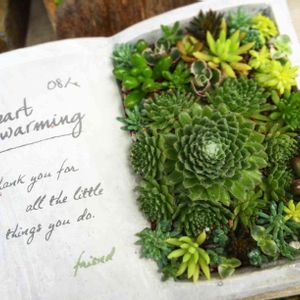 eart
warming
hank you for
all the little
things you do.
friend